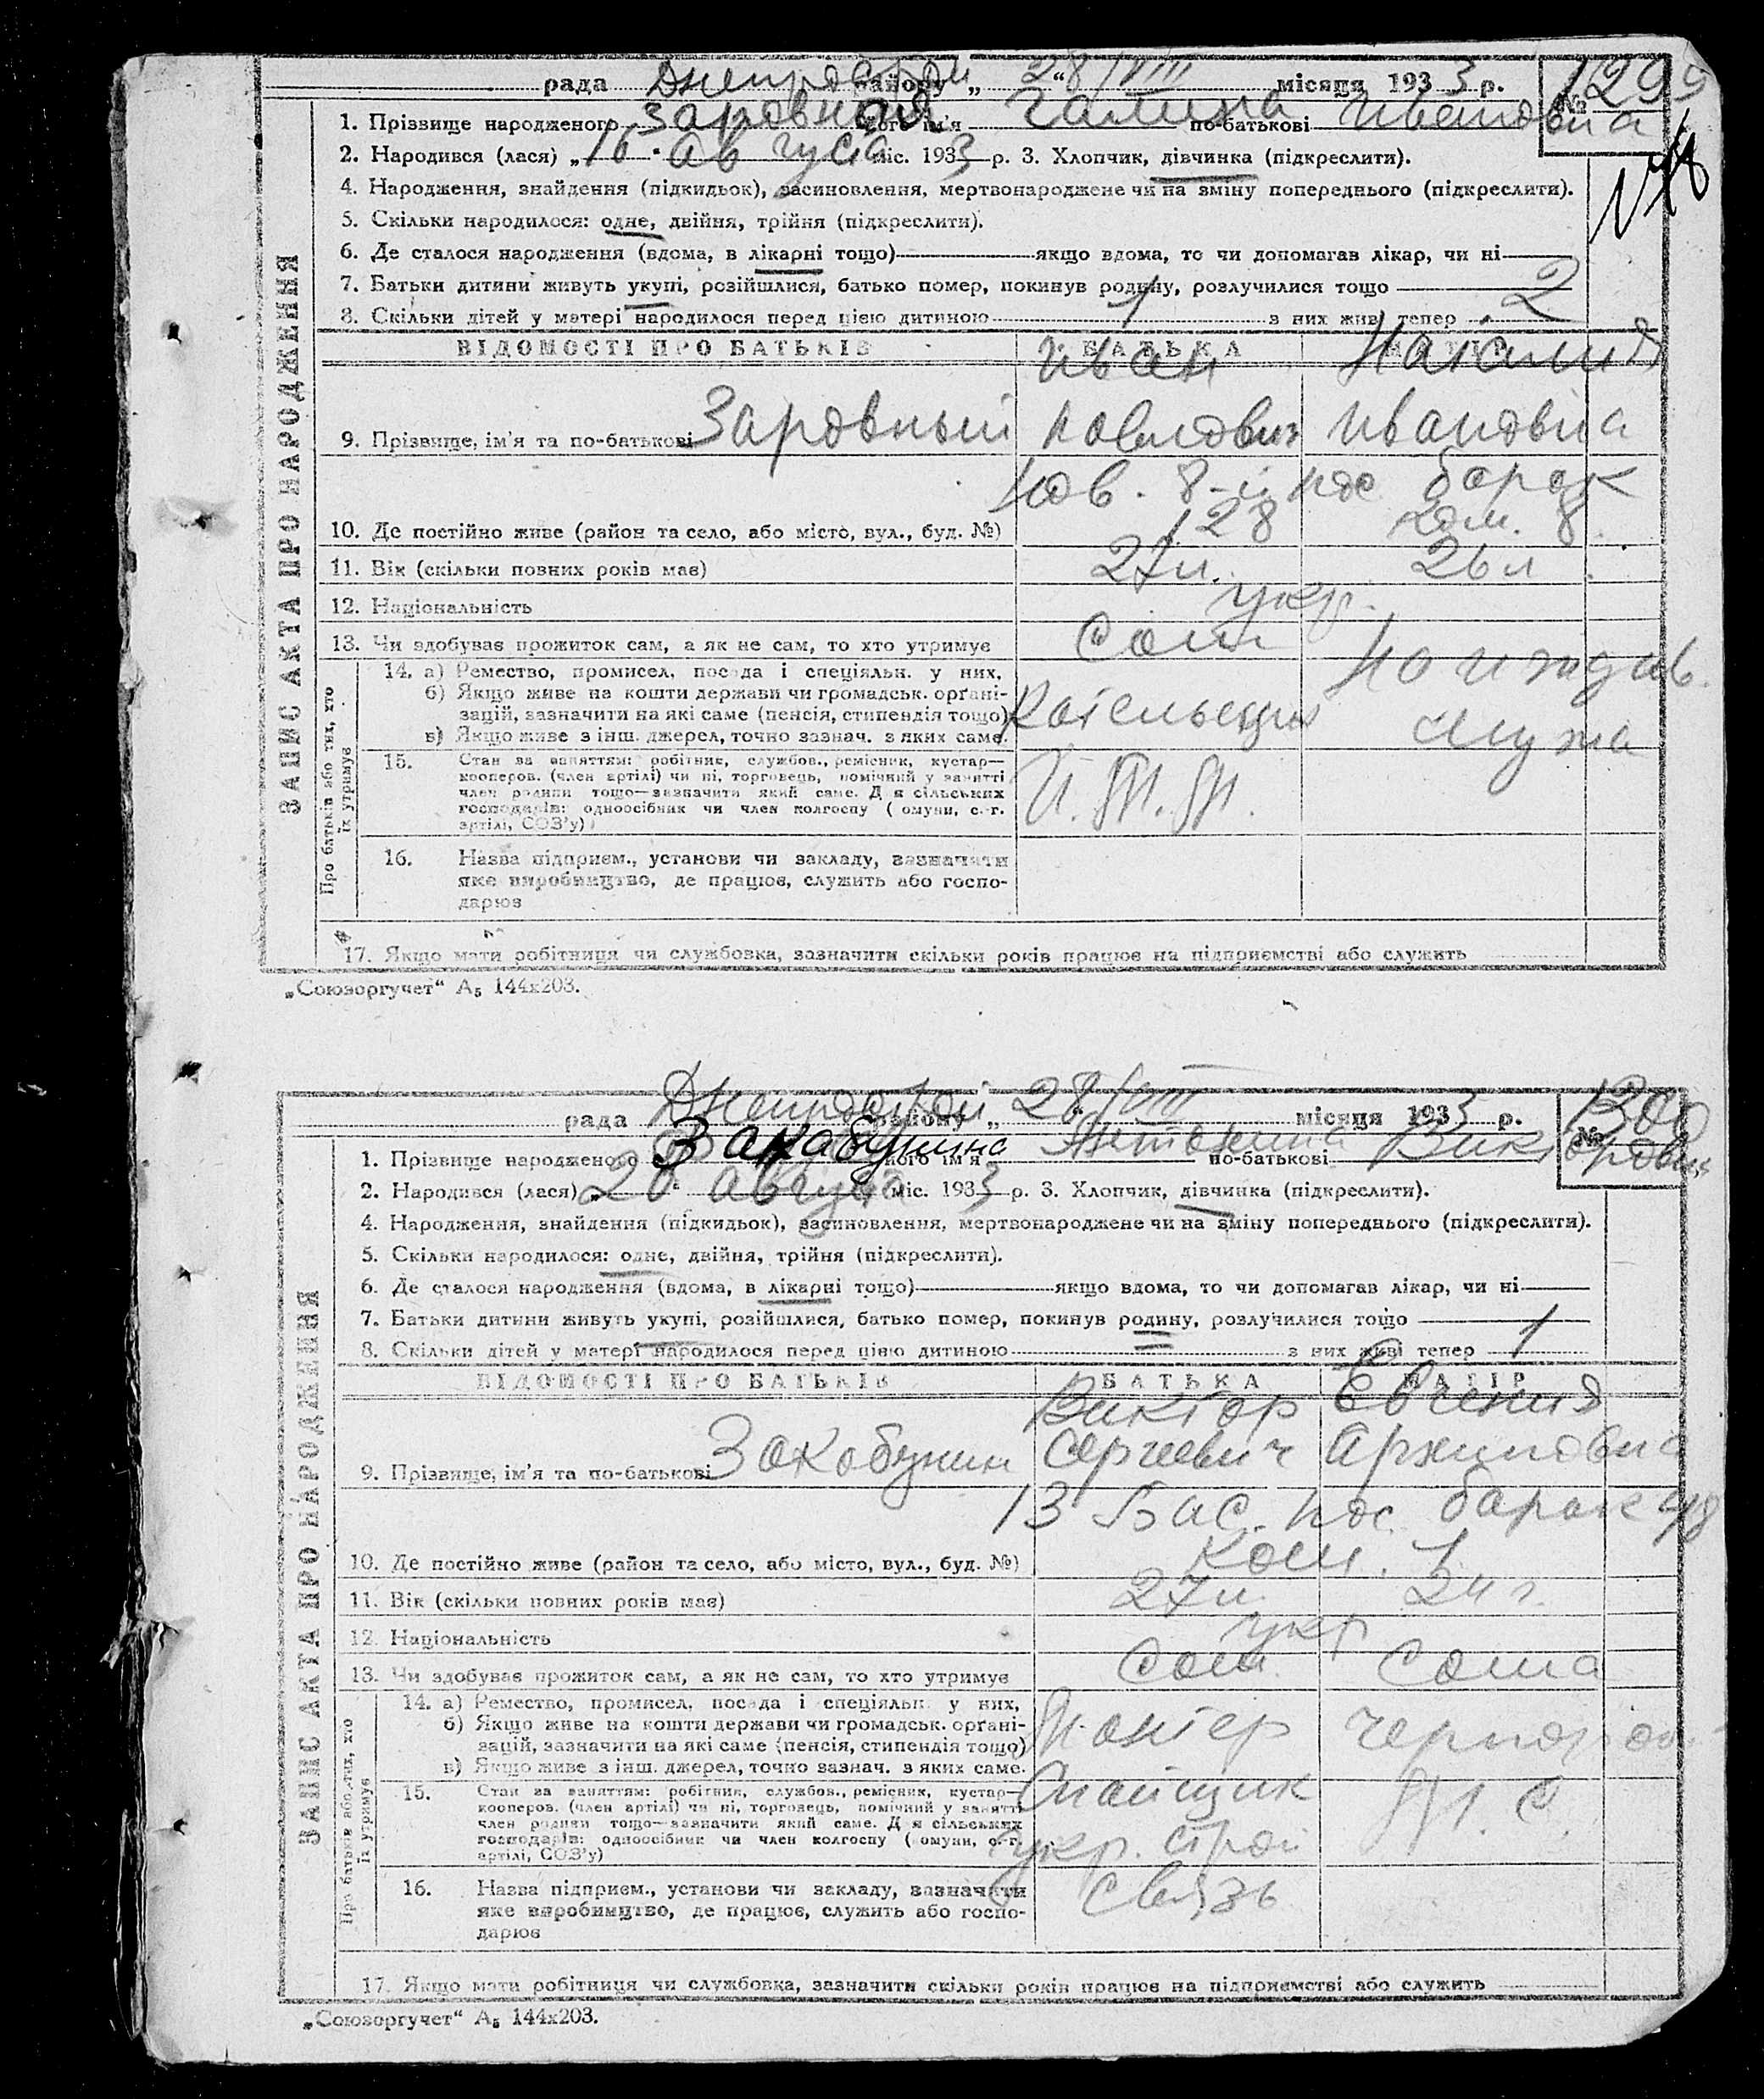 рада Днепрострой району „ 28/VIII “ місяця 1933 р. № 1299
1. Прізвище народженого Заровная його ім'я Галина по-батькові Ивановна
2. Народився (лася) „16“ августа міс. 1933 р. 3. Хлопчик, дівчинка (підкреслити).
4. Народження, знайдення (підкидьок), засиновлення, мертвонароджене чи на зміну попереднього (підкреслити).
5. Скільки народилося: одне, двійня, трійня (підкреслити).
6. Де сталося народження (вдома, в лікарні тощо) якщо вдома, то чи допомагав лікар, чи ні
7. Батьки дитини живуть укупі, розійшлися, батько помер, покинув родину, розлучилися тощо
8. Скільки дітей у матері народилося перед цією дитиною 1 з них живі тепер 2
ЗАПИС АКТА ПРО НАРОДЖЕННЯ
ВІДОМОСТІ ПРО БАТЬКІВ БАТЬКА МАТІР
Иван
9. Прізвище, ім'я та по-батькові Заровный Павлович Ивановна
8-й пос барак
10. Де постійно живе (район та село, або місто, вул., буд. №) 128 ком. 8
11. Вік (скільки повних років має) 27л. 26л
12. Національність укр.
13. Чи здобуває прожиток сам, а як не сам, то хто утримує Сам На иждив.
Про батьків або тих, хто їх утримує
14. а) Ремество, промисел, посада і спеціяльн. у них,
б) Якщо живе на кошти держави чи громадськ. органі-
зацій, зазначити на які саме (пенсія, стипендія тощо) Котельщик мужа
в) Якщо живе з інш. джерел, точно зазнач. з яких саме.
15. Стан за заняттям: робітник, службов., ремісник, кустар—
кооперов. (член артілі) чи ні, торговець, помічний у занятті
член родини тощо—зазначити який саме. Для сільських
господарів: одноосібник чи член колгоспу (комуни, с.-г.
артілі, СОЗ'у)
16. Назва підприєм., установи чи закладу, зазначити
яке виробництво, де працює, служить або госпо-
дарює
17. Якщо мати робітниця чи службовка, зазначити скільки років працює на підприємстві або служить
„Союзоргучет“ А₅ 144х203.
рада Днепрострой району „ 28/VIII “ місяця 1933 р. № 1300
1. Прізвище народженого Закабунина його ім'я Антонина по-батькові Викторовна
2. Народився (лася) „20“ августа міс. 1933 р. 3. Хлопчик, дівчинка (підкреслити).
4. Народження, знайдення (підкидьок), засиновлення, мертвонароджене чи на зміну попереднього (підкреслити).
5. Скільки народилося: одне, двійня, трійня (підкреслити).
6. Де сталося народження (вдома, в лікарні тощо) якщо вдома, то чи допомагав лікар, чи ні
7. Батьки дитини живуть укупі, розійшлися, батько помер, покинув родину, розлучилися тощо
8. Скільки дітей у матері народилося перед цією дитиною = з них живі тепер 1
ЗАПИС АКТА ПРО НАРОДЖЕННЯ
ВІДОМОСТІ ПРО БАТЬКІВ БАТЬКА МАТІР
Виктор Евгения
9. Прізвище, ім'я та по-батькові Закабунин Сергеевич Архиповна
13 Бас. пос. барак 48
10. Де постійно живе (район та село, або місто, вул., буд. №) ком. 1
11. Вік (скільки повних років має) 27л.
12. Національність укр
13. Чи здобуває прожиток сам, а як не сам, то хто утримує Сам. Сама
Про батьків або тих, хто їх утримує
14. а) Ремество, промисел, посада і спеціяльн. у них,
б) Якщо живе на кошти держави чи громадськ. органі- Монтер
зацій, зазначити на які саме (пенсія, стипендія тощо)
в) Якщо живе з інш. джерел, точно зазнач. з яких саме.
15. Стан за заняттям: робітник, службов., ремісник, кустар— спайщик
кооперов. (член артілі) чи ні, торговець, помічний у занятті
член родини тощо—зазначити який саме. Для сільських
господарів: одноосібник чи член колгоспу (комуни, с.-г. укр. строй
артілі, СОЗ'у)
16. Назва підприєм., установи чи закладу, зазначити связь
яке виробництво, де працює, служить або госпо-
дарює
17. Якщо мати робітниця чи службовка, зазначити скільки років працює на підприємстві або служить
„Союзоргучет“ А₅ 144х203.